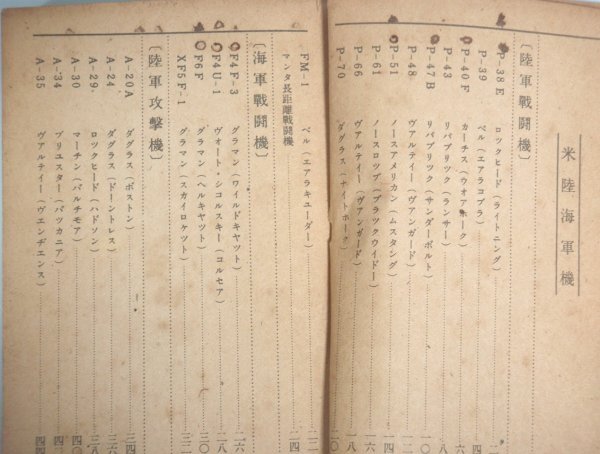 米陸海軍機
〔陸軍戰闘機〕
P-38E ロツクヒード(ライトニング)
P-39 ベル(エアラコブラ)
P-40F カーチス(ウオアホーク)
P-43 リパブリツク(ランサー)
P-47B リパブリツク(サンダーボルト)
P-48 ヴアルティー(ヴアンガード)
P-51 ノースアメリカン(ムスタング)
P-61 ノースロツプ(ブラツクウイドー)
P-66 ヴアルティー(ヴアンガード)
P-70 ダグラス(ナイトホーク)
FM-1 ベル(エアラキユーダー)
マンタ長距離戰闘機
〔海軍戰闘機〕
F4F-3 グラマン(ワイルドキヤツト)
F4U-1 ヴオート・シコルスキー(コルセア)
F6F グラマン(ヘルキヤツト)
XF5F-1 グラマン(スカイロケツト)
〔陸軍攻擊機〕
A-20A ダグラス(ボストン)
A-24 ダグラス(ドーントレス)
A-29 ロツクヒード(ハドソン)
A-30 マーチン(バルチモア)
A-34 ブリユスター(バツカニア)
A-35 ヴアルティー(ヴエンヂエンス)